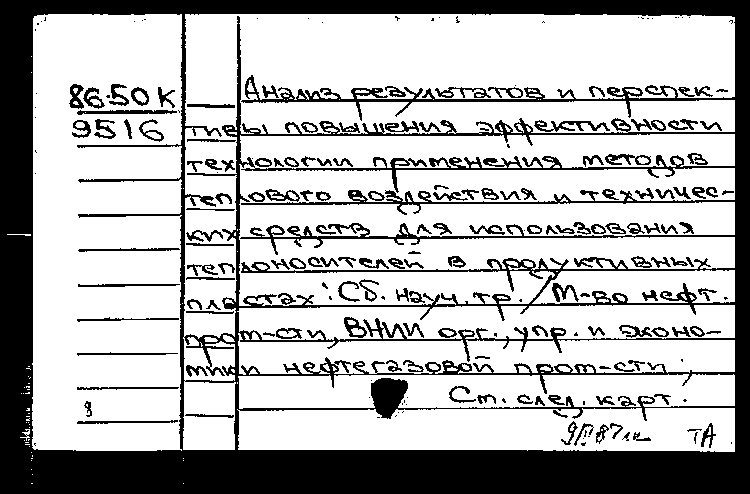 86-50К Анализ результатов и перспек-
9516 тивы повышения эффективности
технологии применения методов
теплового воздействия и техничес-
ких средств для использования
теплоносителей в продуктивных
пластах: Сб. науч. тр. / М-во нефт.
пром-сти, ВНИИ орг., упр. и эконо-
мики нефтегазовой пром-сти;
См. след. карт.
ТА